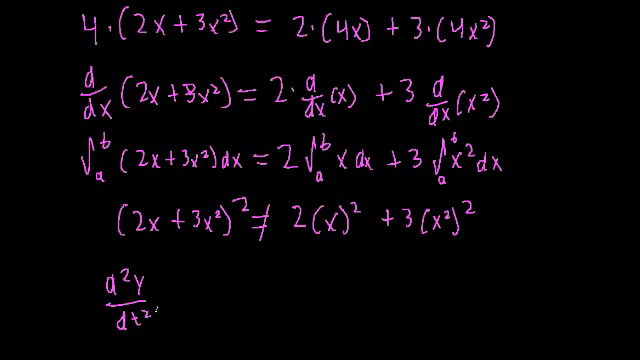 4·(2x + 3x²) = 2·(4x) + 3·(4x²)
d/dx (2x + 3x²) = 2·d/dx (x) + 3 d/dx (x²)
∫ₐᵇ (2x + 3x²) dx = 2 ∫ₐᵇ x dx + 3 ∫ₐᵇ x² dx
(2x + 3x²)² ≠ 2(x)² + 3(x²)²
d²y/dt²